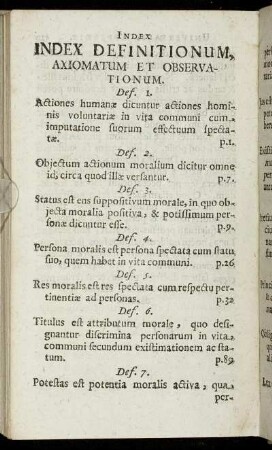 INDEX
INDEX DEFINITIONUM,
AXIOMATUM ET OBSERVA-
TIONUM.
Def. 1.
Actiones humanæ dicuntur actiones homi-
nis voluntariæ in vita communi cum
imputatione suorum effectuum specta-
tæ. p.1.
Def. 2.
Objectum actionum moralium dicitur omne
id, circa quod illæ versantur. p.7.
Def. 3.
Status est ens suppositivum morale, in quo ob-
jecta moralia positiva, & potissimum per-
sonæ dicuntur esse. p.9.
Def. 4.
Persona moralis est persona spectata cum statu
suo, quem habet in vita communi. p.26
Def. 5.
Res moralis est res spectata cum respectu per-
tinentiæ ad personas. p.32
Def. 6.
Titulus est attributum morale, quo desi-
gnantur discrimina personarum in vita
communi secundum existimationem ac sta-
tum. p.89.
Def. 7.
Potestas est potentia moralis activa, qua
per-